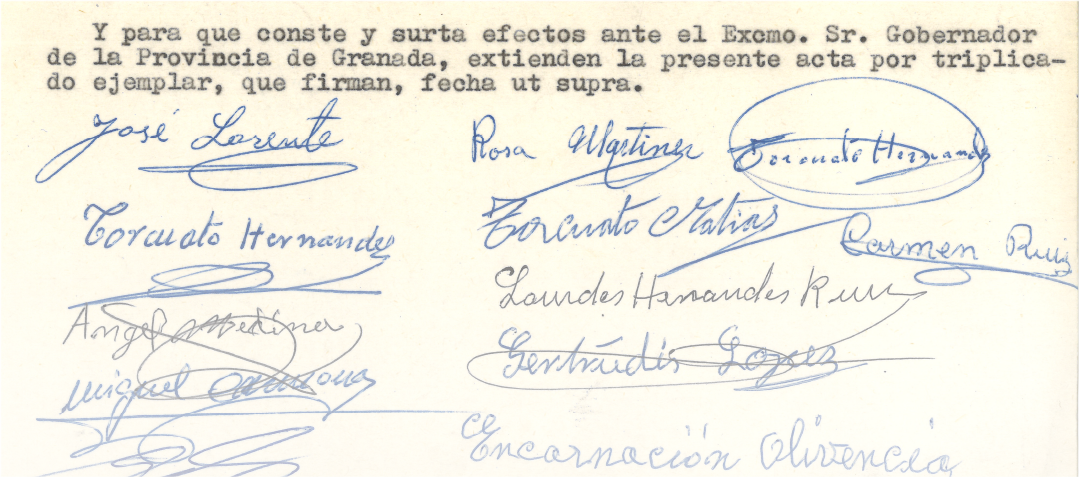 Y para que conste y surta efectos ante el Excmo. Sr. Gobernador
de la Provincia de Granada, extienden la presente acta por triplica-
do ejemplar, que firman, fecha ut supra.
José Lorente
Rosa Martinez
Torcuato Hernandez
Torcuato Hernandez
Torcuato Matias
Carmen Ruiz
Angel Medina
Lourdes Hernandes Ruiz
Miguel
Gertrudis Lopez
Encarnación Olivencia